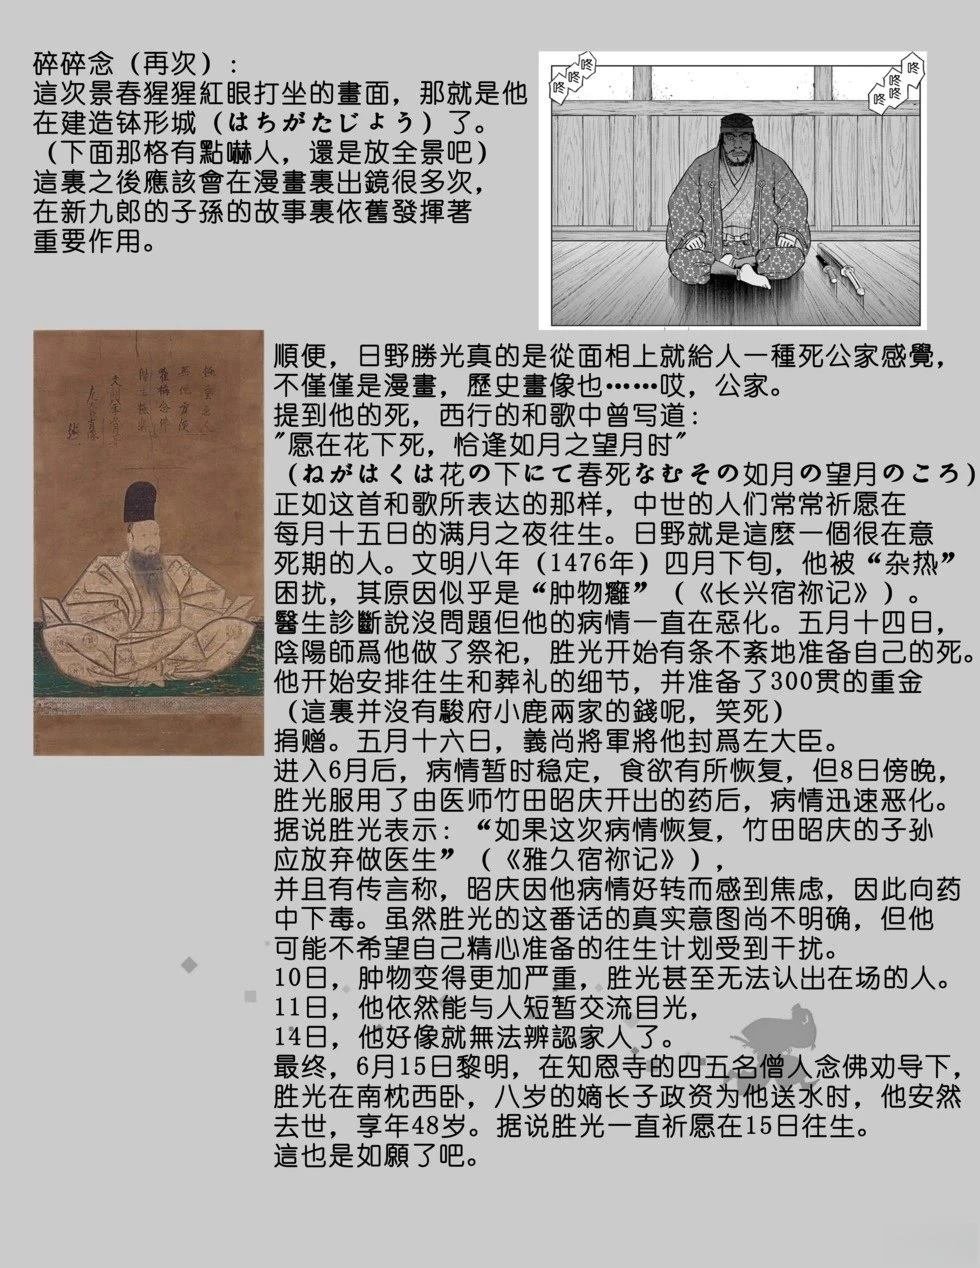 碎碎念（再次）：
這次景春猩猩紅眼打坐的畫面，那就是他
在建造钵形城（はちがたじょう）了。
（下面那格有點嚇人，還是放全景吧）
這裏之後應該會在漫畫裏出鏡很多次，
在新九郎的子孫的故事裏依舊發揮著
重要作用。
咚咚咚
咚咚咚
順便，日野勝光真的是從面相上就給人一種死公家感覺，
不僅僅是漫畫，歷史畫像也……哎，公家。
提到他的死，西行的和歌中曾写道：
"愿在花下死，恰逢如月之望月时"
（ねがはくは花の下にて春死なむその如月の望月のころ）
正如这首和歌所表达的那样，中世的人们常常祈愿在
每月十五日的满月之夜往生。日野就是這麽一個很在意
死期的人。文明八年（1476年）四月下旬，他被“杂热”
困扰，其原因似乎是“肿物癰”（《长兴宿祢记》）。
醫生診斷說沒問題但他的病情一直在惡化。五月十四日，
陰陽師爲他做了祭祀，胜光开始有条不紊地准备自己的死。
他开始安排往生和葬礼的细节，并准备了300贯的重金
（這裏并沒有駿府小鹿兩家的錢呢，笑死）
捐赠。五月十六日，義尚將軍將他封爲左大臣。
进入6月后，病情暂时稳定，食欲有所恢复，但8日傍晚，
胜光服用了由医师竹田昭庆开出的药后，病情迅速恶化。
据说胜光表示：“如果这次病情恢复，竹田昭庆的子孙
应放弃做医生”（《雅久宿祢记》），
并且有传言称，昭庆因他病情好转而感到焦虑，因此向药
中下毒。虽然胜光的这番话的真实意图尚不明确，但他
可能不希望自己精心准备的往生计划受到干扰。
10日，肿物变得更加严重，胜光甚至无法认出在场的人。
11日，他依然能与人短暂交流目光，
14日，他好像就無法辨認家人了。
最终，6月15日黎明，在知恩寺的四五名僧人念佛劝导下，
胜光在南枕西卧，八岁的嫡长子政资为他送水时，他安然
去世，享年48岁。据说胜光一直祈愿在15日往生。
這也是如願了吧。